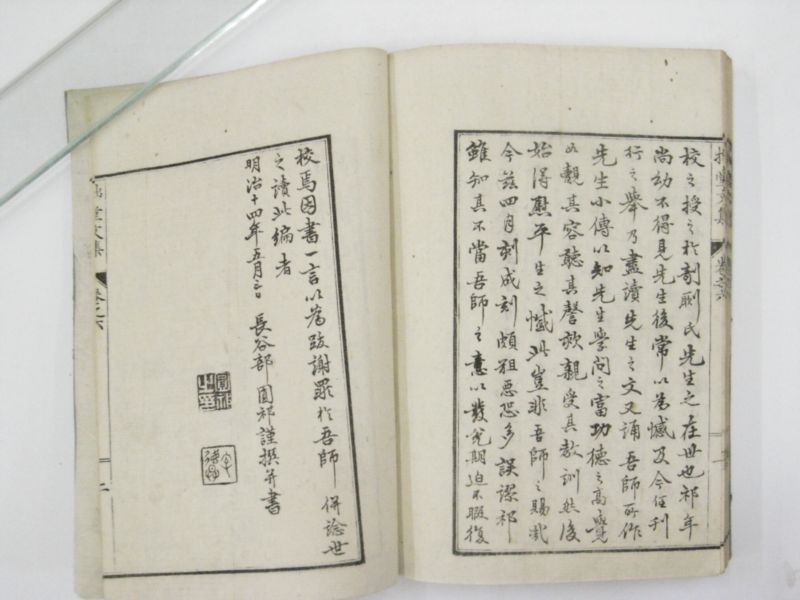 校之授之於剞劂氏先生之在世也祁年
尚幼不得見先生後常以為憾及今任刊
行之舉乃盡讀先生之文又誦吾師所作
先生小傳以知先生學問之富功德之高覺
如覩其容聽其謦欬親受其教訓然後
始得慰平生之憾此豈非吾師之賜哉
今茲四月刻成刻頗粗惡恐多誤謬祁
雖知其不當吾師之意以發兌期迫不暇復
校焉因書一言以為跋謝罪於吾師併諗世
之讀此編者
明治十四年五月 長谷部圓祁謹撰并書
堂文集
卷之六
文集
卷之六